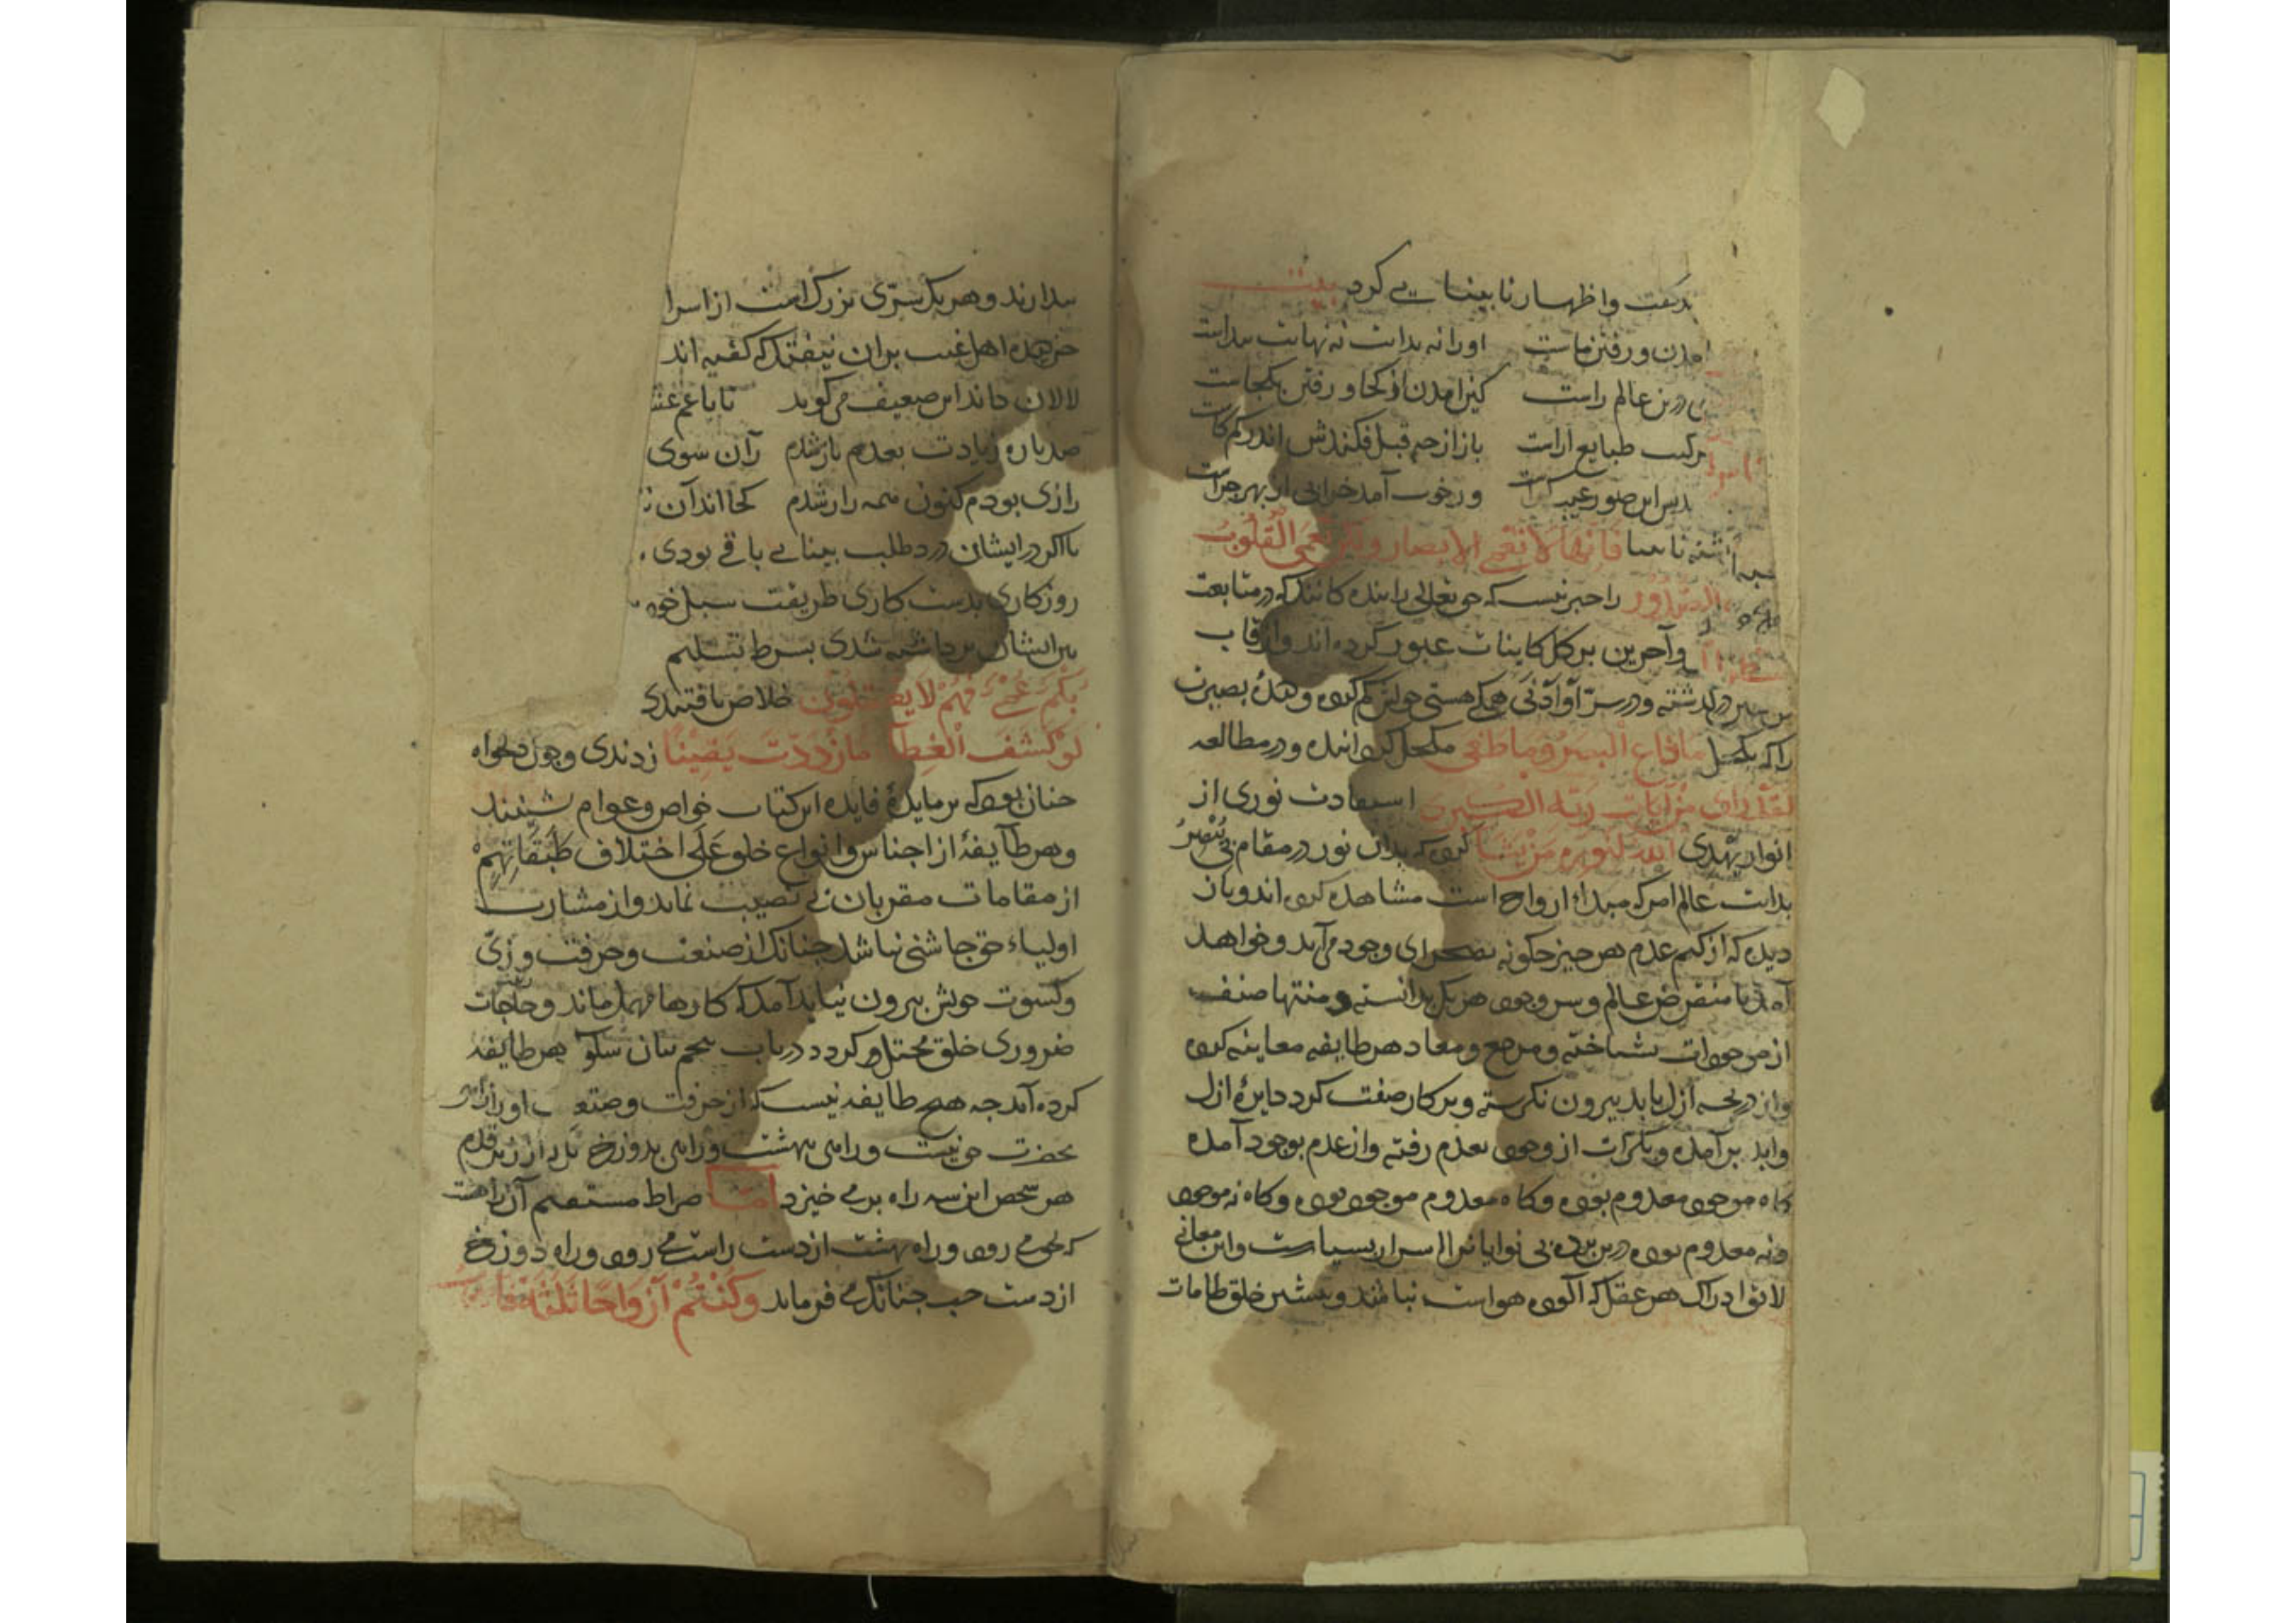 بدگفت واظهار نابینایی کرد بیت
آمدن ورفتن ماست اورا نه بدایت نه نهایت پیداست
درین عالم راست کین آمدن از کجا ورفتن بکجاست
ترکیب طبایع اراست باز از چه قبل فکندش اندر کم کاست
پس این صور عیب کراست ورخوب آمد خرابی از بهر چراست
نابینا فَاِنَّها لا تَعْمَی الابصار وَلٰکِن تَعْمَی الْقُلُوبُ
الصدور را خبر نیست که حق تعالی را بندگانند که در متابعت
وآخرین بر کل کاینات عبور کرده اند واز قاب
درگذشته ودر سرّ اَوْاَدْنٰی همگی هستی خویش گم کرده ودیدهٔ بصیرت
را که بکحل مازاغ البصر وماطغی مکحل کرده اند ودر مطالعه
لقد رای من آیات ربه الکبری استفادت نوری از
انوار یهدی الله لنوره من یشا کرده که بدان نور در مقام بی یُبْصِرُ
بدایت عالم امر که مبداء ارواح است مشاهده کرده اند وباز
دیده که از کتم عدم هر چیز چگونه بصحرای وجود می آید وخواهد
آمد تا منقرض عالم وسر وجود هر یک بدانسته ومنتها صنف
از موجودات بشناخته ومرجع ومعاد هر طایفه معاینه کرده
واز دریچه ازل بابد بیرون نگرسته وپرکار صفت گرد دایرهٔ ازل
وابد برآمده وبکرات از وجود بعدم رفته واز عدم بوجود آمده
گاه موجود معدوم بوده وگاه معدوم موجود بوده وگاه نه موجود
ونه معدوم بوده درین پرده بی نوایانرا اسرار بسیارست واین معانی
لایق ادراک هر عقل که آلوده هواست نباشد وبیشتر خلق طامات
پندارند وهر یک سرّی بزرگ است از اسرا
جز دیده اهل غیب بران نیفتد که گفته اند
لالان داند این ضعیف می گوید تا با غم عشق
صد باره زیادت بعدم بازشدم زآن سوی
رازی بودم کنون همه راز شدم کجا اند آن
تا اگر در ایشان درد طلب بینایی باقی بودی
روزکاری بدست کاری طریقت سبل خود
بین ایشان برداشته شدی بشرط تسلیم
بُکْمٌ عُمْیٌ فَهُمْ لا یَعْقِلُونَ خلاص یافتندی
لَوْ کُشِفَ الْغِطا مَا ازْدَدْتُ یَقِیْنًا زدندی وچون دلخواه
چنان بود که بر مایدهٔ فایده این کتاب خواص وعوام نشینند
وهر طایفهٔ از اجناس وانواع خلق عَلَی اختلاف طَبَقَاتِهِمْ
از مقامات مقربان بی نصیب نماند واز مشارب
اولیاء حق چاشنی بباشد چنانک از صنعت وحرفت وزیّ
وکسوت خویش بیرون نیاید آمد که کارها مهمل ماند وحاجات
ضروری خلق مختل گردد در باب پنجم بیان سلوک هر طایفه
کرده آمد چه هیچ طایفه نیست که از حرفت وصنعت او راهی
بحضرت حق نیست وراهی ببهشت وراهی بدوزخ بل از زیر قدم
هر شخص این سه راه بر می خیزد امّا صراط مستقیم آن راهست
که بحق می رود وراه بهشت از دست راست می رود وراه دوزخ
از دست چپ چنانک می فرماید وَکُنْتُمْ اَزْوَاجًا ثَلٰثَةً